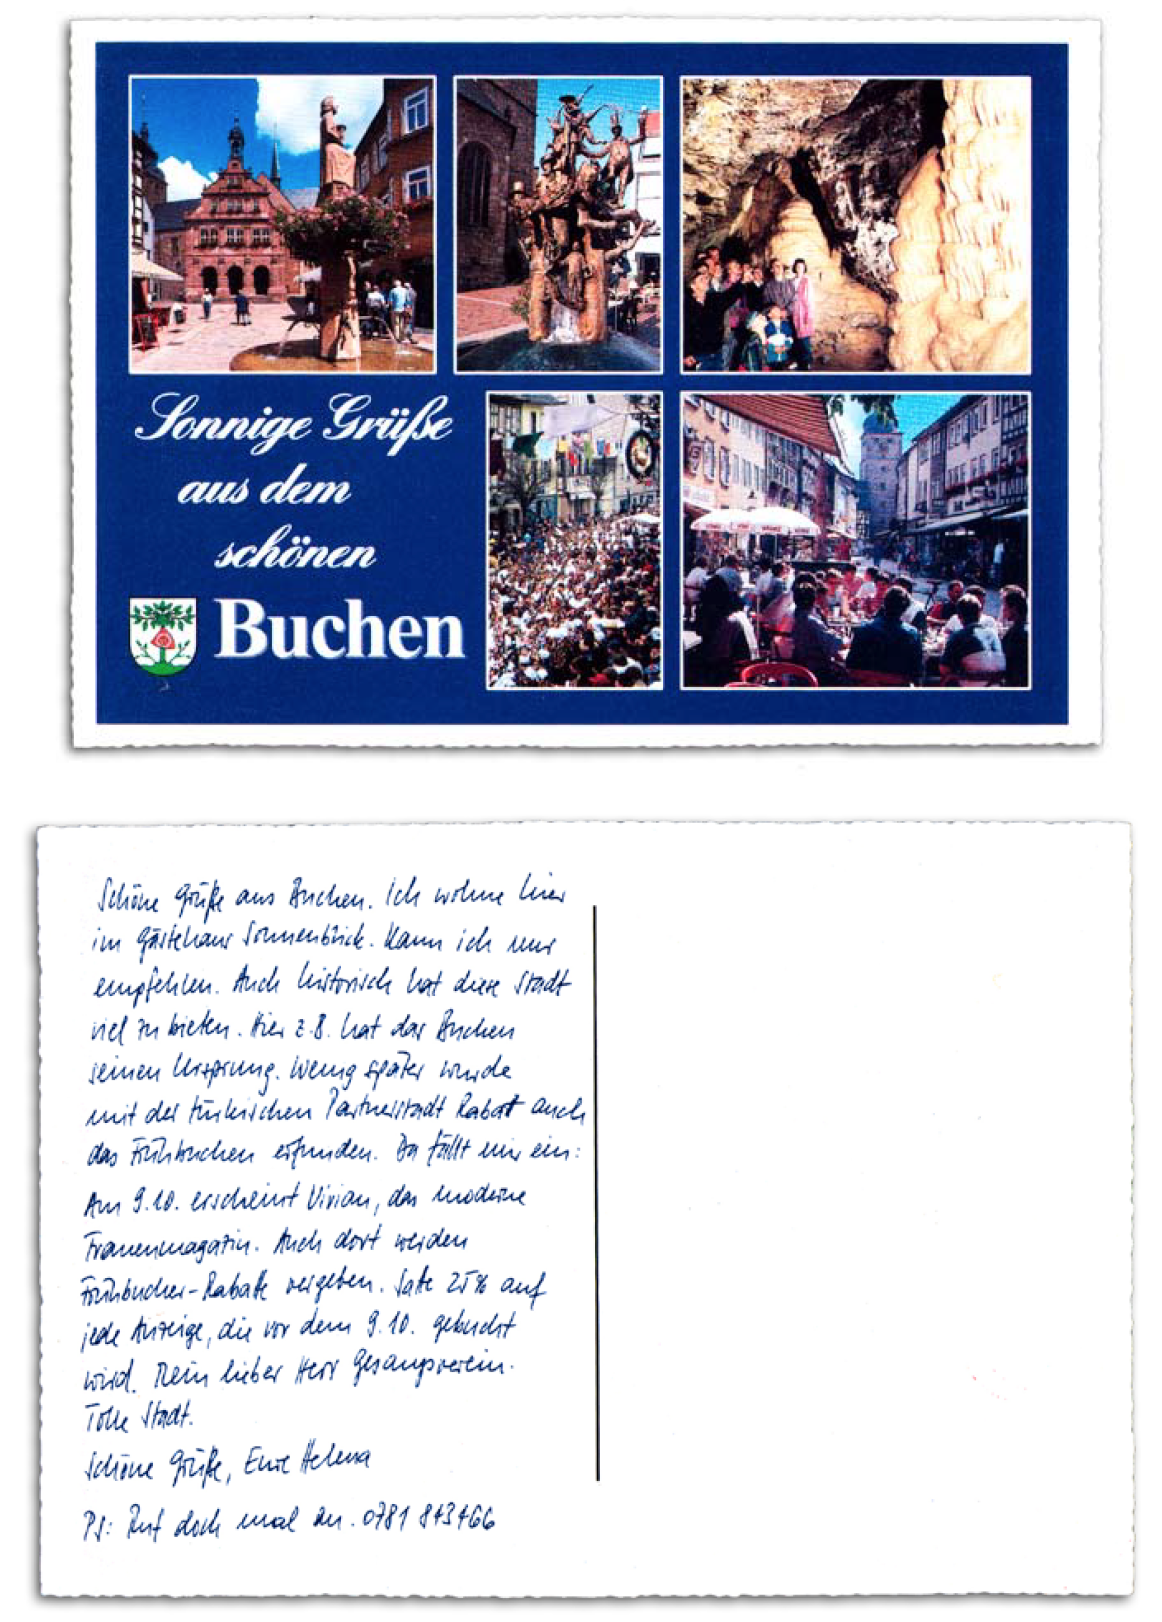 Sonnige Grüße
aus dem
schönen
Buchen
Schöne Grüße aus Buchen. Ich wohne hier
im Gästehaus Sonnenblick. Kann ich nur
empfehlen. Auch historisch hat diese Stadt
viel zu bieten. Hier z.B. hat das Buchen
seinen Ursprung. Wenig später wurde
mit der türkischen Partnerstadt Rabat auch
das Frühbuchen erfunden. Da fällt mir ein:
Am 9.10. erscheint Vivian, das moderne
Frauenmagazin. Auch dort werden
Frühbucher-Rabatte vergeben. Satte 25% auf
jede Anzeige, die vor dem 9.10. gebucht
wird. Mein lieber Herr Gesangsverein.
Tolle Stadt.
Schöne Grüße, Eure Helena
PS: Ruf doch mal an. 0781 843466